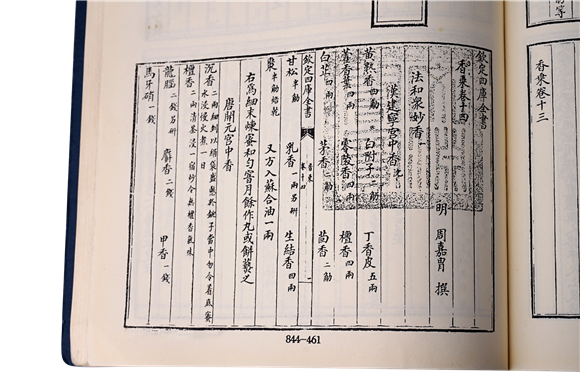 欽定四庫全書
香乘卷十四
明 周嘉胄 撰
法和衆妙香一
漢建寧宮中香 沈
黄熟香 四觔 白附子 二觔 丁香皮 五兩
藿香葉 四兩 零陵香 四兩 檀香 四兩
白芷 四兩 茅香 二觔 茴香 二觔
甘松 半觔 乳香 一兩另研 生結香 四兩
棗 半觔焙乾 又方入蘇合油一兩
右為細末煉蜜和匀窨月餘作丸或餅爇之
唐開元宮中香
沉香 二兩細剉以絹袋盛懸於銚子當中勿令着底蜜水浸慢火煮一日
檀香 二兩清茶浸一宿炒令無檀香氣味
龍腦 二錢另研 麝香 二錢 甲香 一錢
馬牙硝 一錢
欽定四庫全書 香乘 卷十四 一
844-461
香乘卷十三